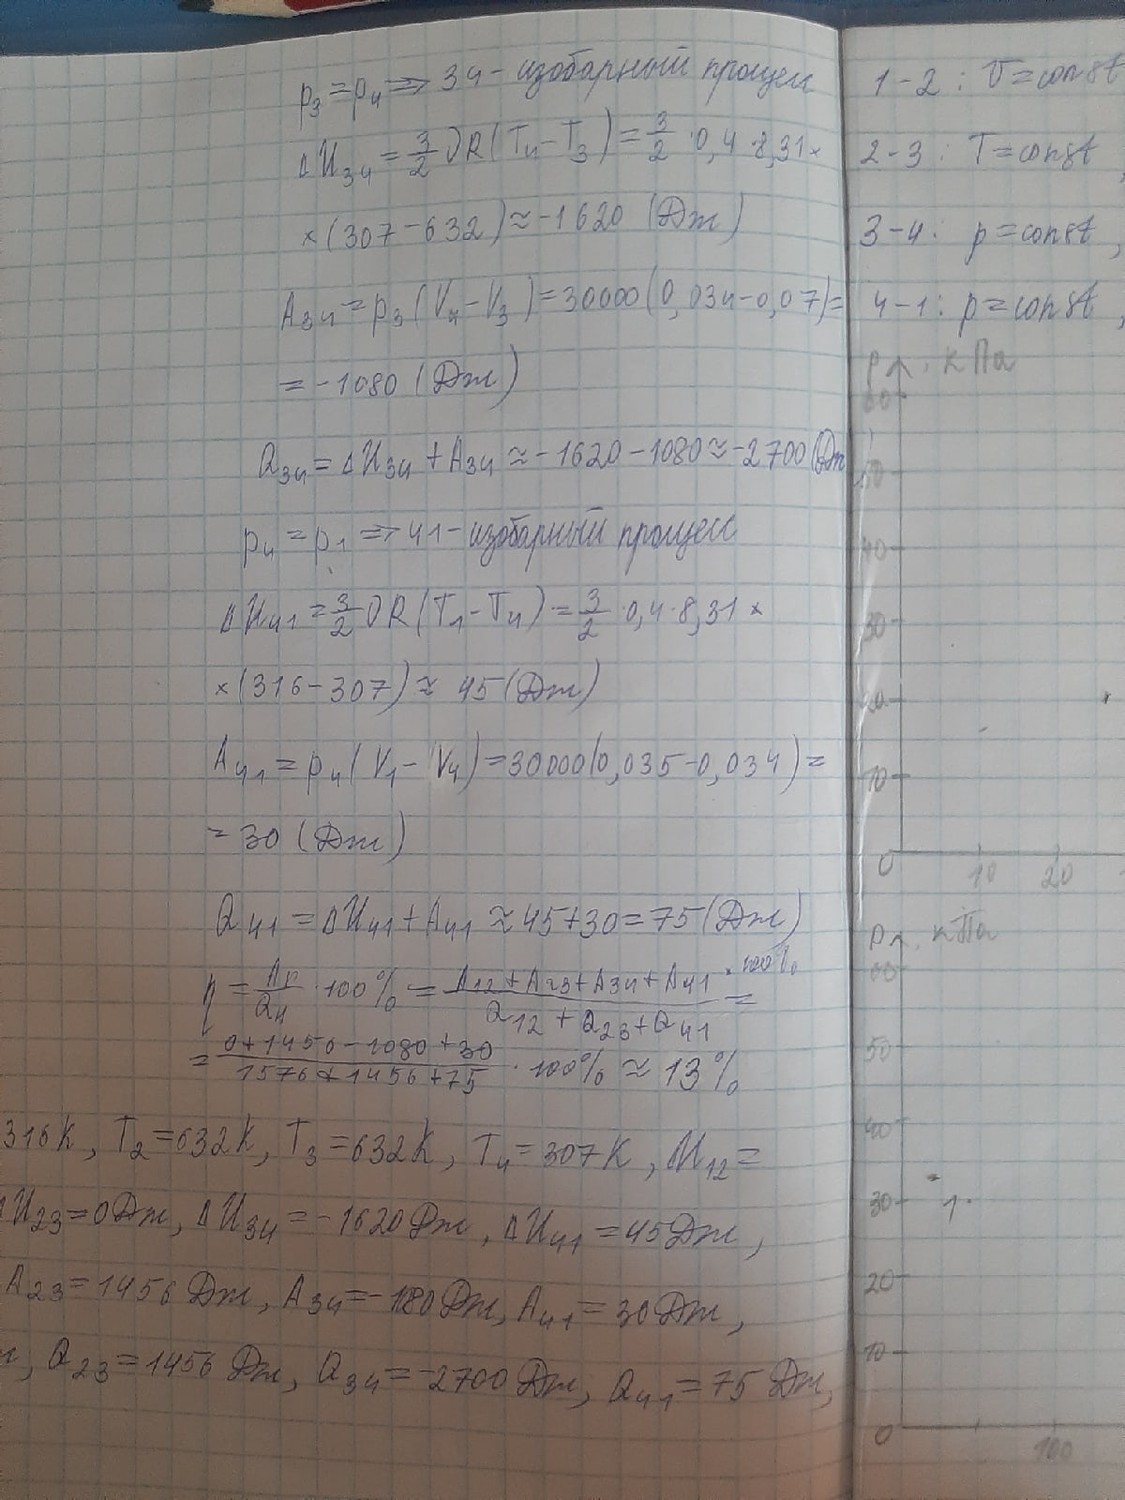 p₃ = p₄ ⇒ 34 - изобарный процесс
ΔU₃₄ = 3/2 νR(T₄ - T₃) = 3/2 · 0,4 · 8,31 ×
× (307 - 632) ≈ -1620 (Дж)
A₃₄ = p₃(V₄ - V₃) = 30000(0,034 - 0,07) =
= -1080 (Дж)
Q₃₄ = ΔU₃₄ + A₃₄ ≈ -1620 - 1080 ≈ -2700 (Дж
p₄ = p₁ ⇒ 41 - изобарный процесс
ΔU₄₁ = 3/2 νR(T₁ - T₄) = 3/2 · 0,4 · 8,31 ×
× (316 - 307) ≈ 45 (Дж)
A₄₁ = p₄(V₁ - V₄) = 30000(0,035 - 0,034) =
= 30 (Дж)
Q₄₁ = ΔU₄₁ + A₄₁ ≈ 45 + 30 = 75 (Дж)
· 100% = (A₁₂ + A₂₃ + A₃₄ + A₄₁)/(Q₁₂ + Q₂₃ + Q₄₁) · 100% =
= (0 + 1456 - 1080 + 30)/(1576 + 1456 + 75) · 100% ≈ 13%
316К, T₂ = 632К, T₃ = 632К, T₄ = 307К, U₁₂ =
ΔU₂₃ = 0 Дж, ΔU₃₄ = -1620 Дж, ΔU₄₁ = 45 Дж,
A₂₃ = 1456 Дж, A₃₄ = -180 Дж, A₄₁ = 30 Дж,
Q₂₃ = 1456 Дж, Q₃₄ = -2700 Дж, Q₄₁ = 75 Дж,
1 - 2 : V = const
2 - 3 : T = const,
3 - 4 : p = const,
4 - 1 : p = const,
p, кПа
60
50
40
30
20
10
0 10 20
p, кПа
60
50
40
30 1
20
10
0 100